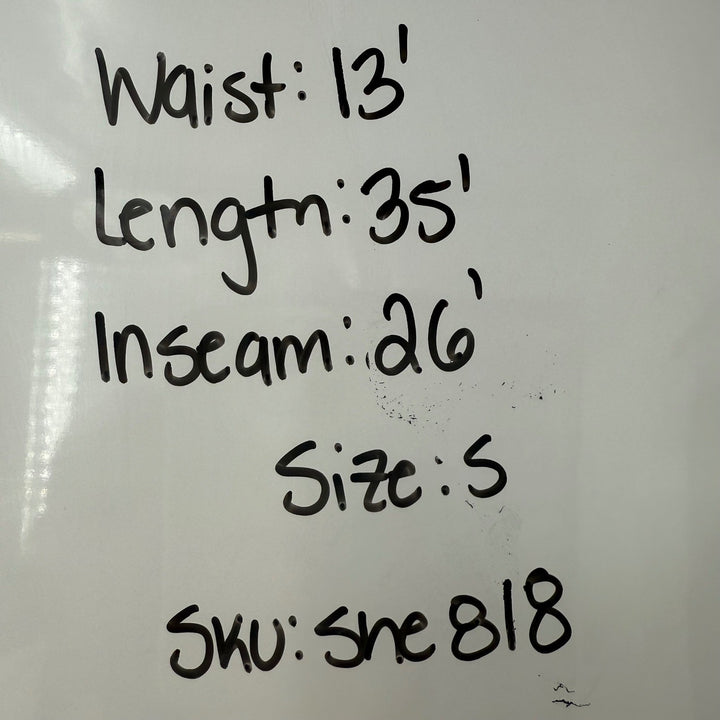 Waist: 13'
Length: 35'
Inseam: 26'
Size: S
SKU: She 818